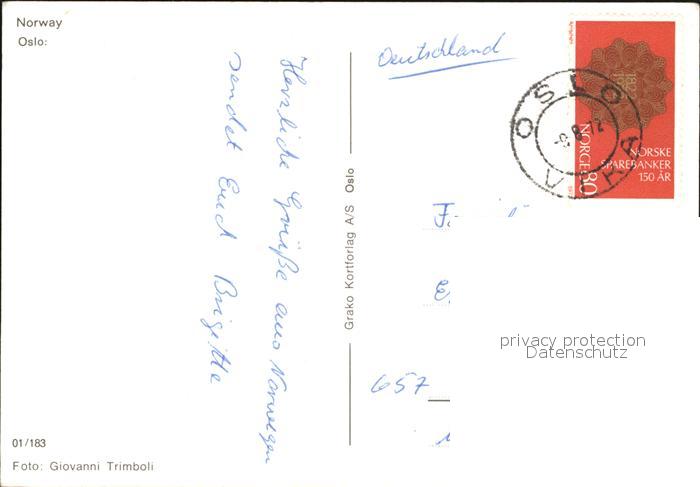 Norway
Oslo:
Herzliche Grüße aus Norwegen
sendet Euch Brigitte
01/183
Foto: Giovanni Trimboli
Grako Kortforlag A/S Oslo
Deutschland
OSLO
8-72
1822
NORGE 80
NORSKE
SPAREBANKER
150 ÅR
F.
E.
657
privacy protection
Datenschutz